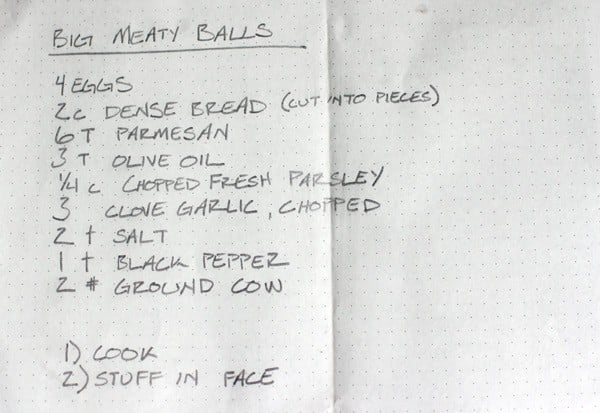 BIG MEATY BALLS
4 EGGS
2c DENSE BREAD (CUT INTO PIECES)
6 T PARMESAN
3 T OLIVE OIL
1/4 c CHOPPED FRESH PARSLEY
3 CLOVE GARLIC, CHOPPED
2 t SALT
1 t BLACK PEPPER
2 # GROUND COW
1) COOK
2) STUFF IN FACE